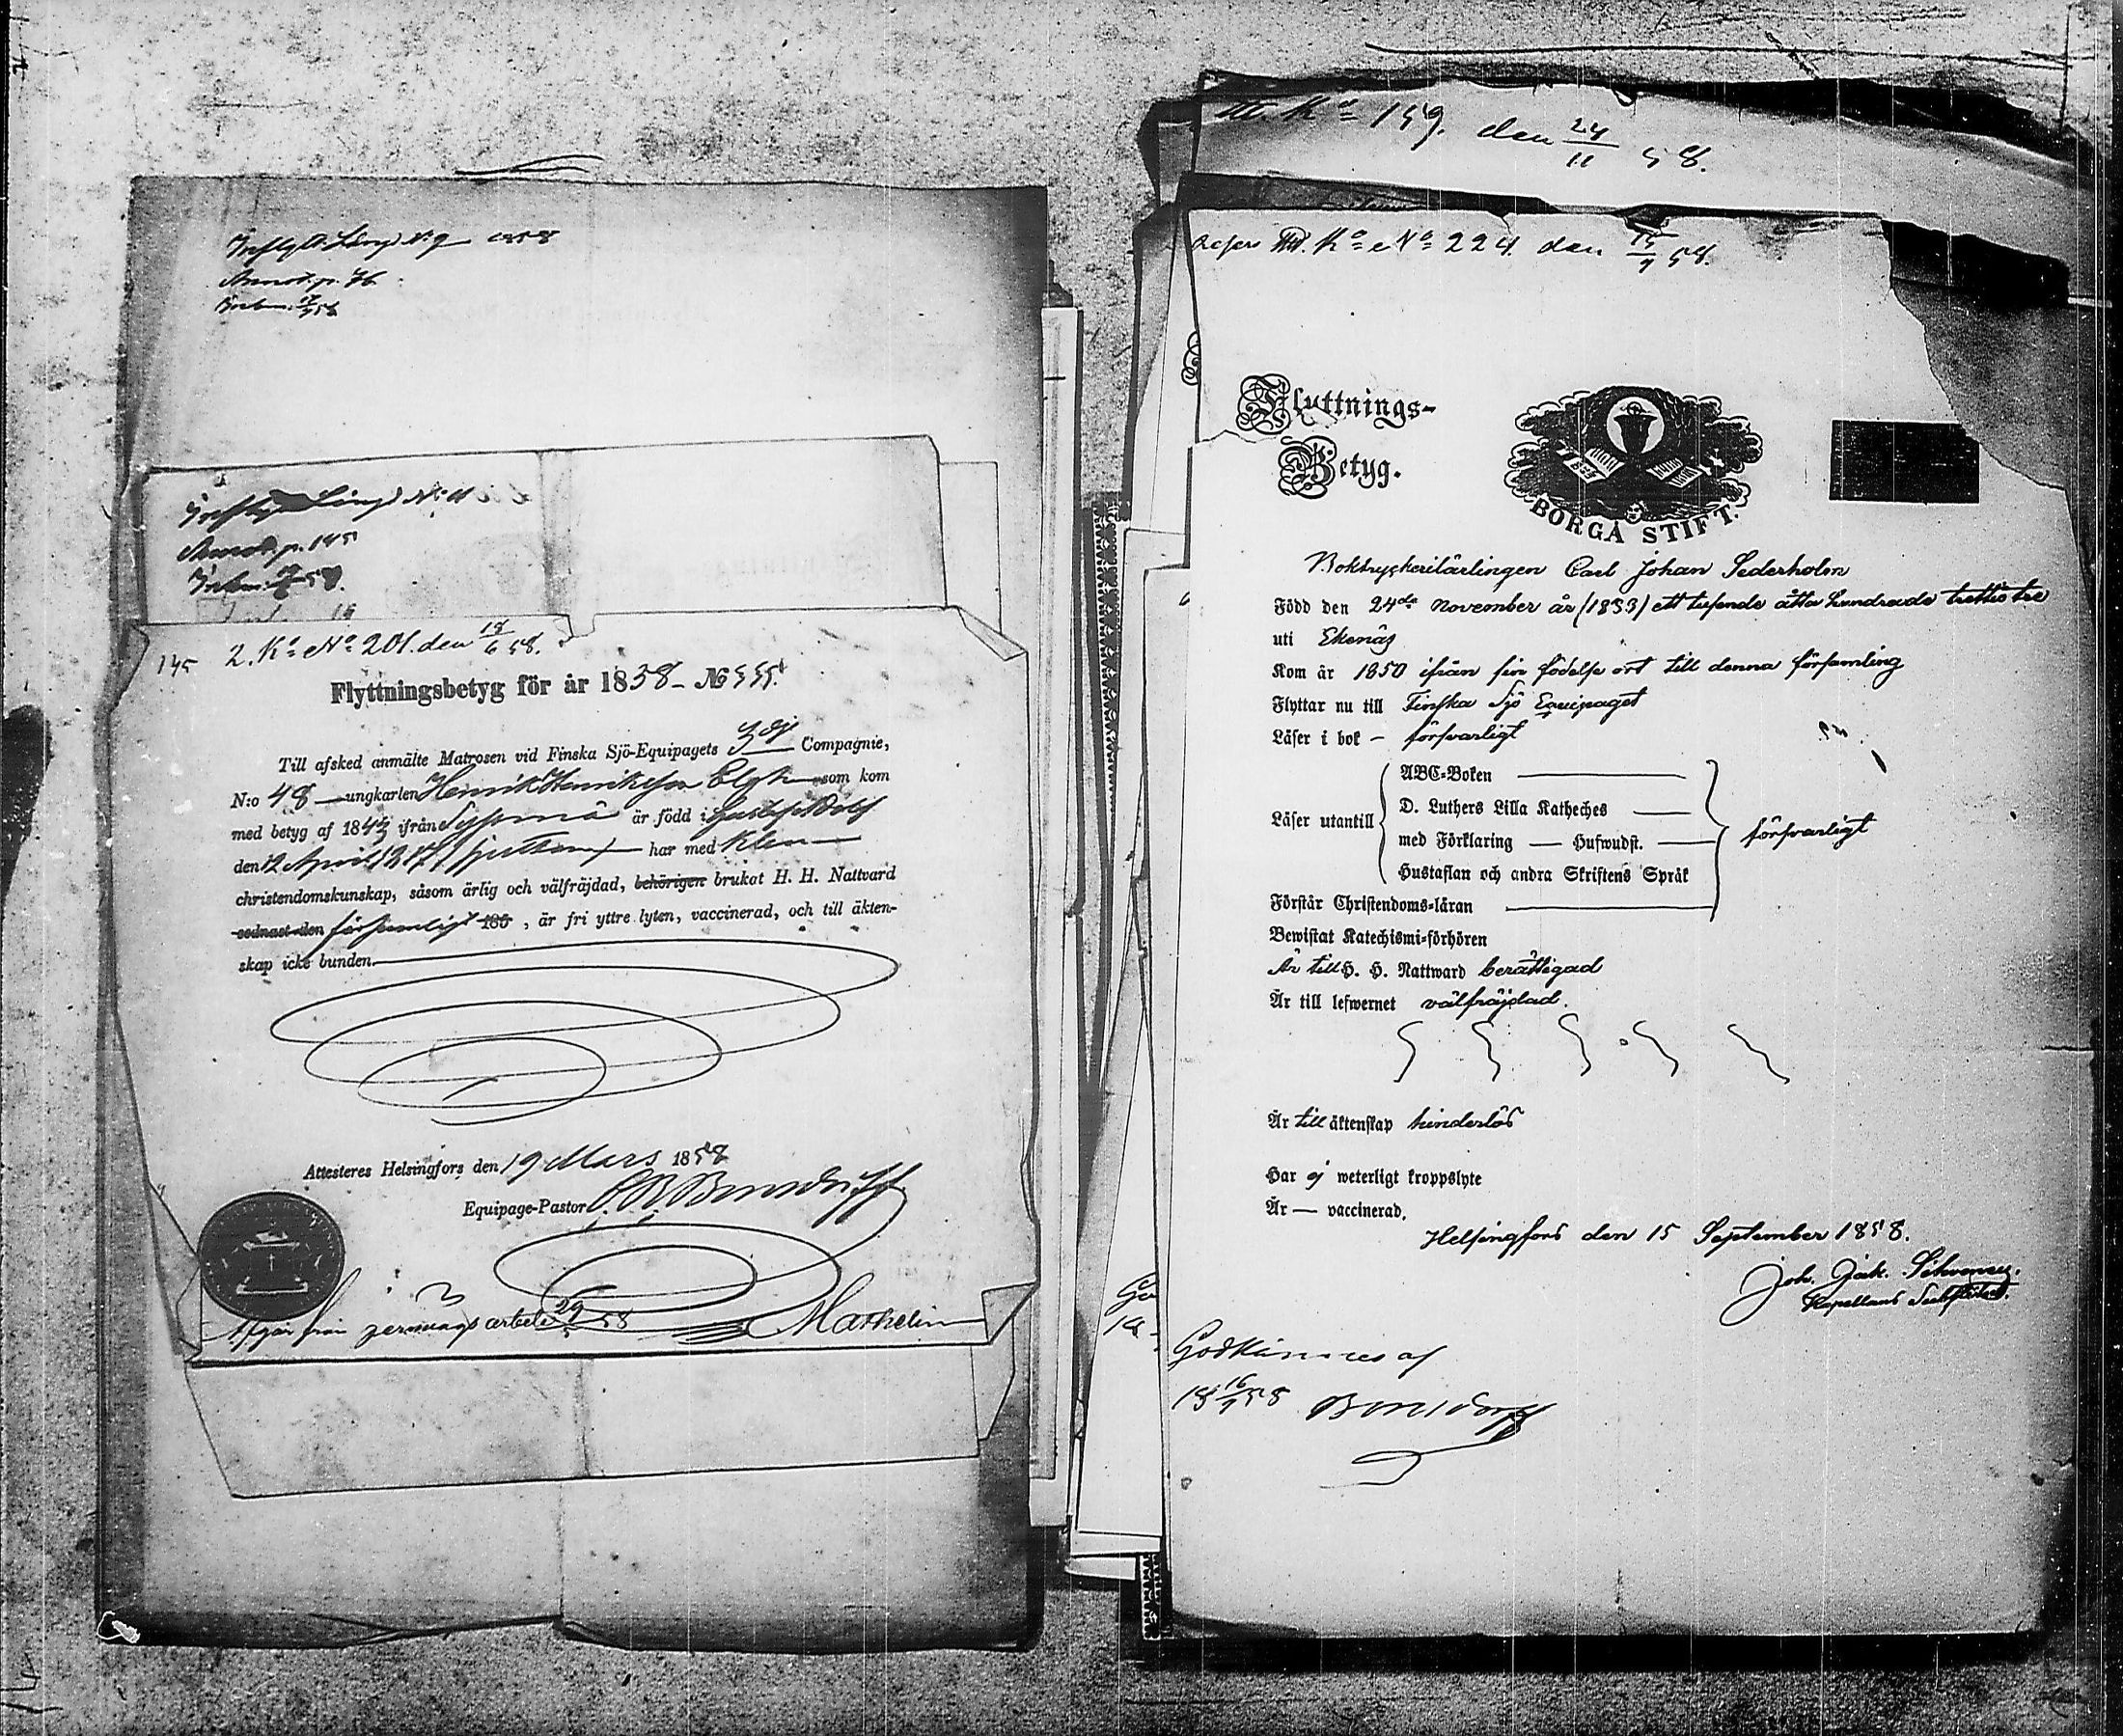 Inflytt. Längd N:o 9 1858
Annot. p. 76.
Längd N:o 11
Annot. p. 145
145
2. K:a No 201. den 18/6 58.
Flyttningsbetyg för år 1858 - No 555.
Till afsked anmälte Matrosen vid Finska Sjö-Equipagets 3dj Compagnie,
N:o 48 — ungkarlen Henrik Henriksson Elgh som kom
med betyg af 184 ifrån Sysmä är född i Gustaf Adolf
den 12 April har med klen
christendomskunskap, såsom ärlig och välfräjdad, behörigen brukat H. H. Nattvard
sednast den försumligt 185 , är fri yttre lyten, vaccinerad, och till äkten-
skap icke bunden.
Attesteres Helsingfors den 19 Mars 1858
Equipage-Pastor
Afgår från 29 58
K:a 159. den 24/11 58.
K:a No 224. den 15/9 58.
Flyttnings-
Betyg.
BORGÅ STIFT.
Boktryckerilärlingen Carl Johan Sederholm
Född den 24de November år (1833) ett tusende åtta hundrade trettio tre
uti Ekenäs
Kom år 1850 ifrån sin födelse ort till denna församling
Flyttar nu till Finska Sjö Equipaget
Läser i bok – försvarligt
Läser utantill
ABC-Boken
D. Luthers Lilla Katheches
med Förklaring — Hufwudst.
Hustaflan och andra Skriftens Språk
försvarligt
Förstår Christendoms-läran
Bewistat Katechismi-förhören
Är till H. H. Nattward berättigad
Är till lefwernet välfräjdad.
Är till äktenskap hinderlös
Har ej weterligt kroppslyte
Är — vaccinerad.
Helsingfors den 15 September 1858.
Joh. Jak.
Kapellans
Godkännes af
18 16/9 58 Bonsdorff